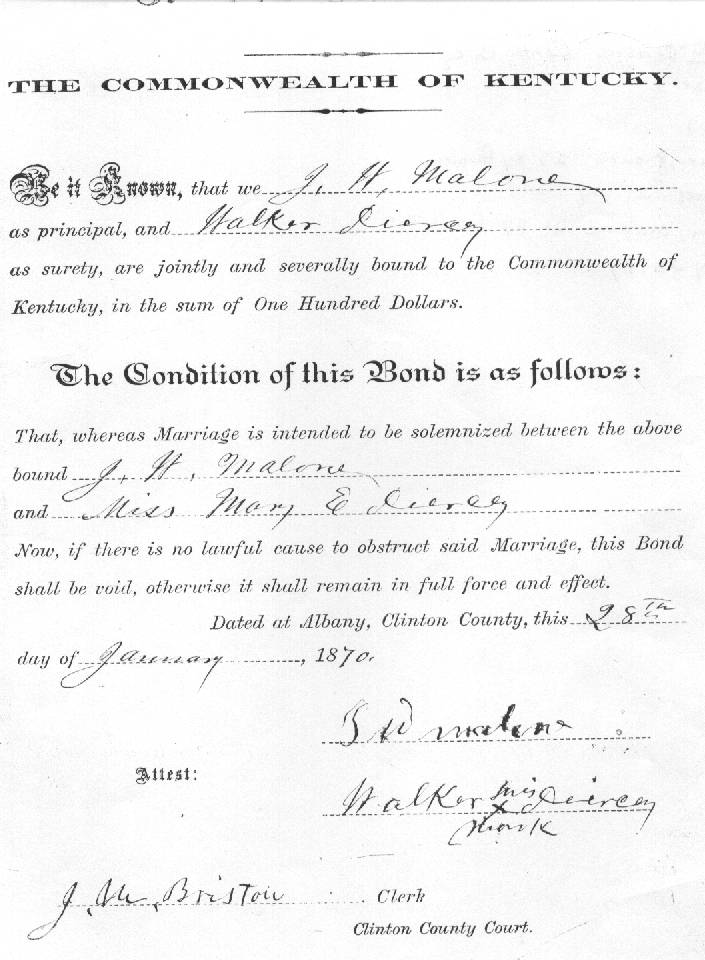 THE COMMONWEALTH OF KENTUCKY.
Be it Known, that we J. H. Malone
as principal, and Walker Piercey
as surety, are jointly and severally bound to the Commonwealth of
Kentucky, in the sum of One Hundred Dollars.
The Condition of this Bond is as follows:
That, whereas Marriage is intended to be solemnized between the above
bound J. H. Malone
and Miss Mary E Piercey
Now, if there is no lawful cause to obstruct said Marriage, this Bond
shall be void, otherwise it shall remain in full force and effect.
Dated at Albany, Clinton County, this 28th
day of January, 1870.
malone
Attest:
Walker his x Piercey
mark
J. M. Briston Clerk
Clinton County Court.